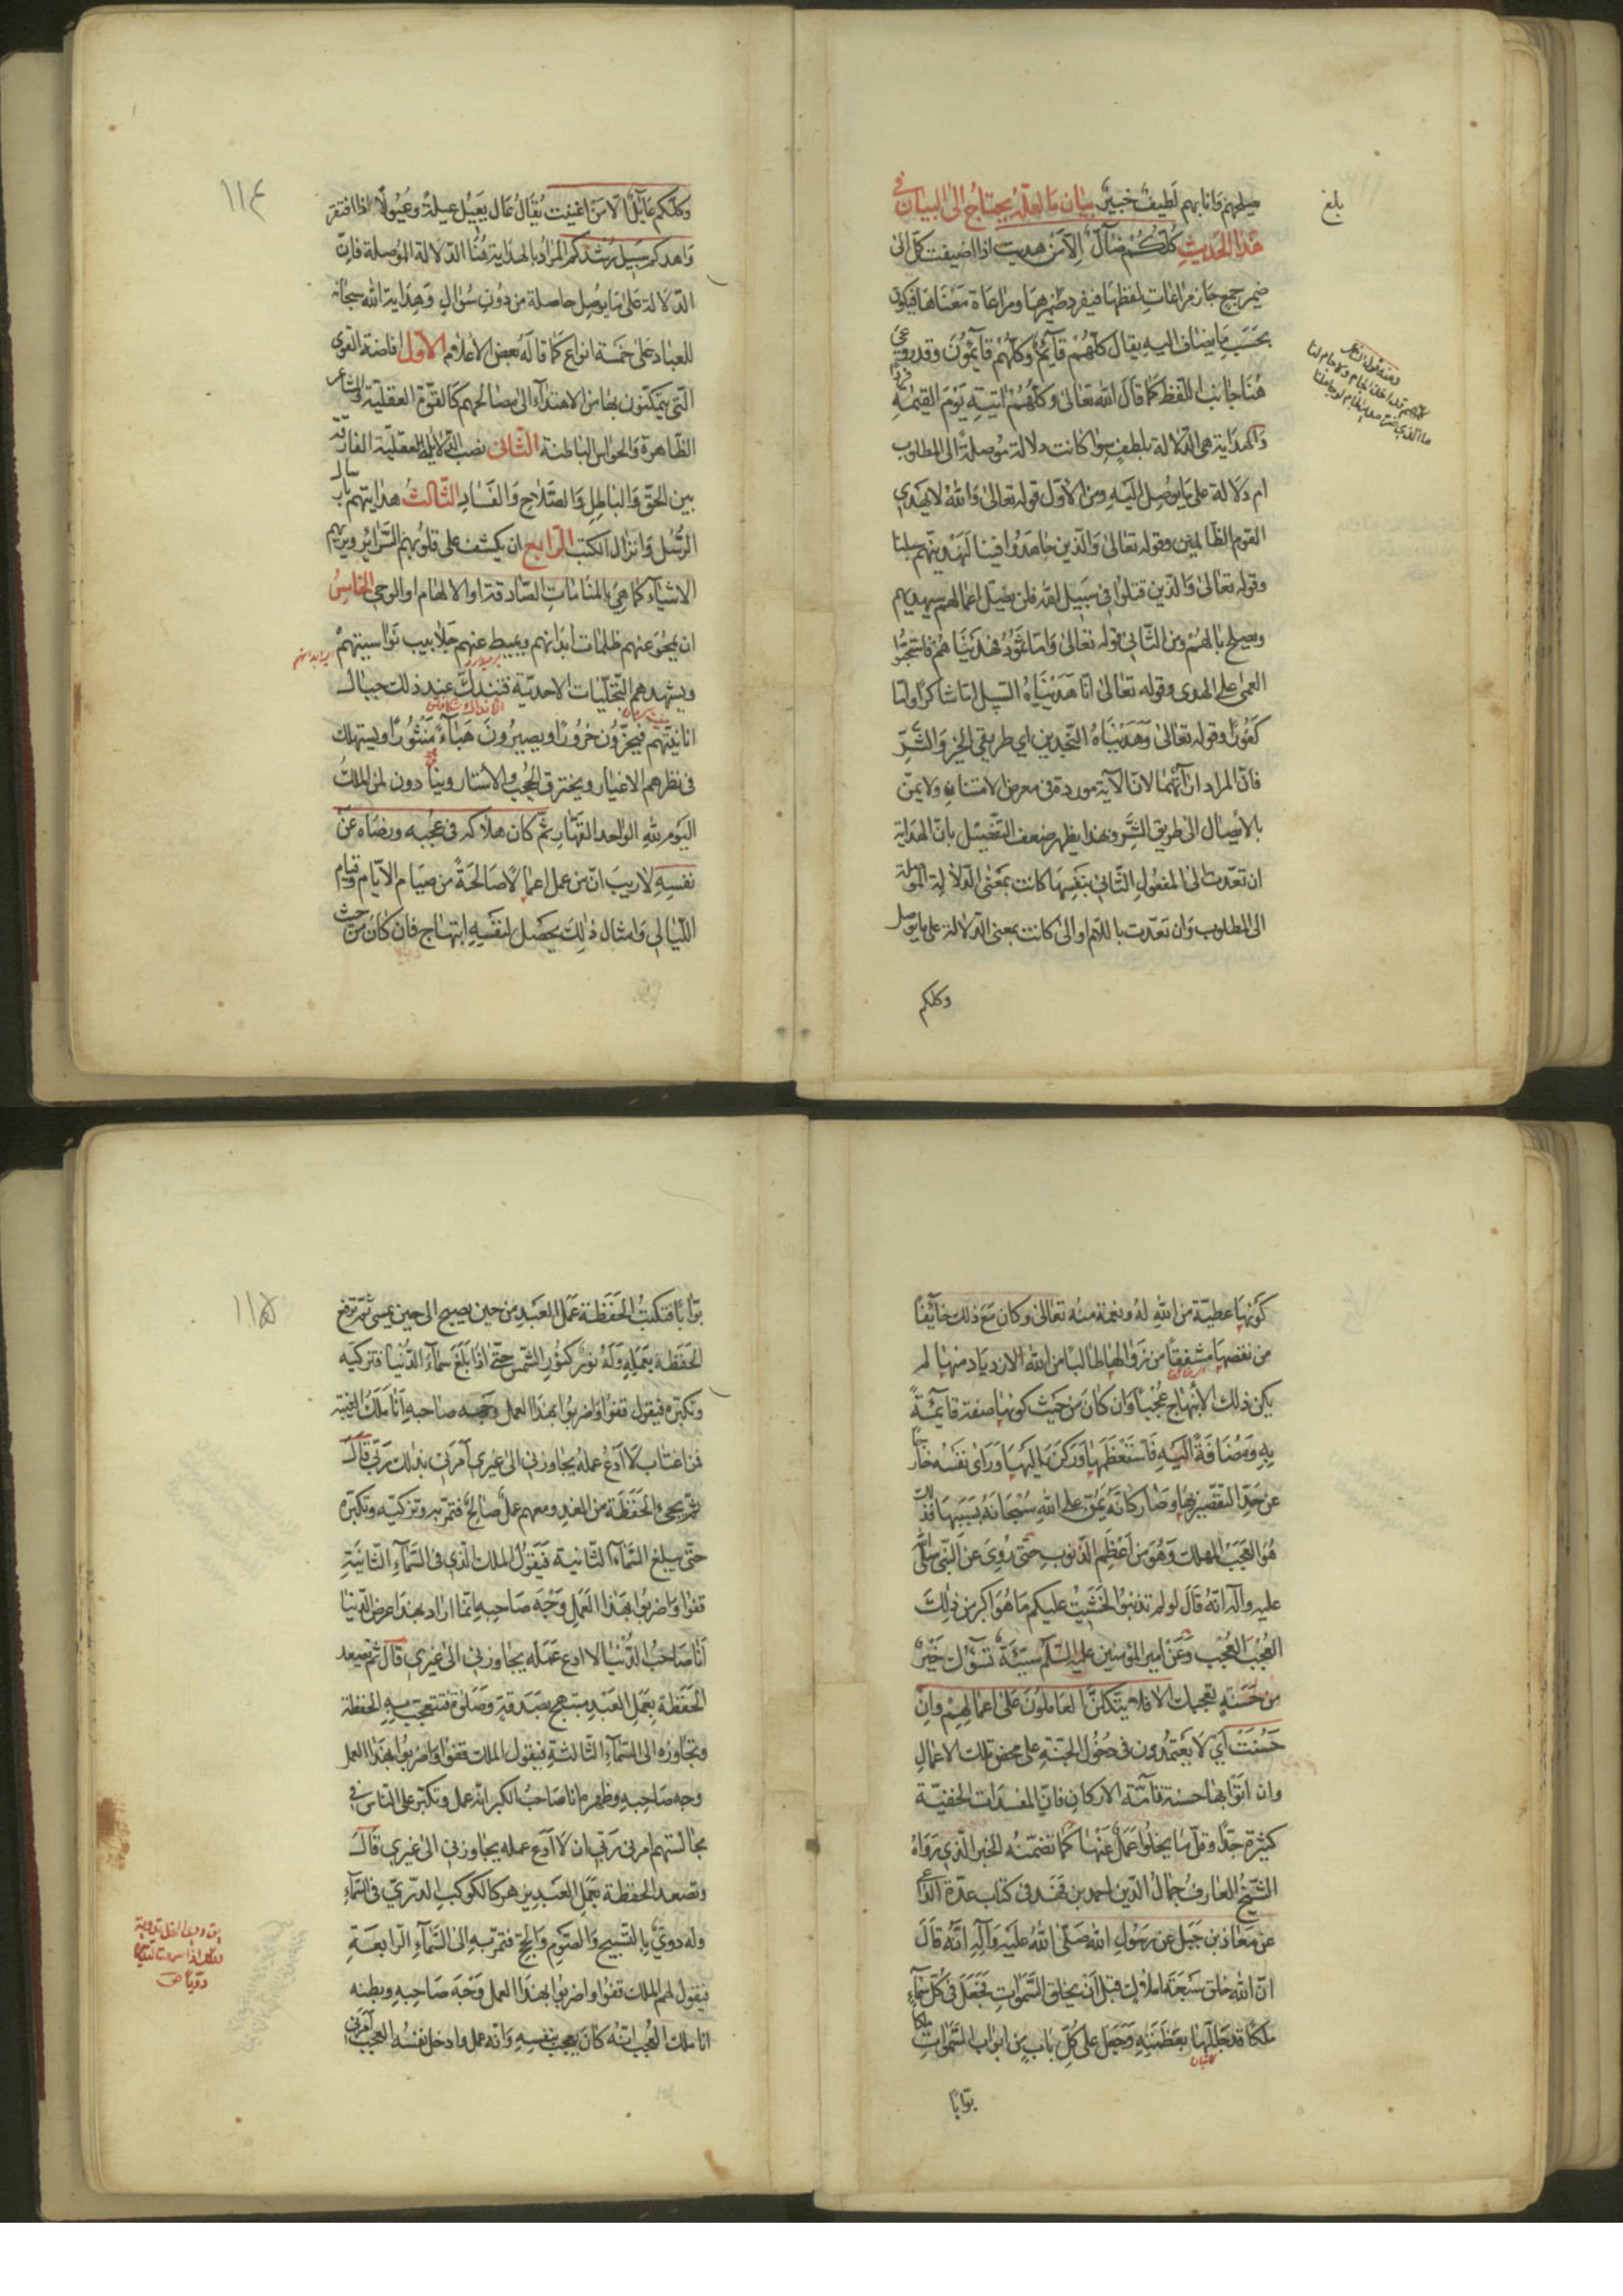 بلغ
يصلحهم فانا بهم لطيف خبير بيان ما لعله يحتاج الى البيان في
هذا الحديث كلكم ضال الا من هديت اذا اضيفت كل الى
ضمير جمع جاز مراعات لفظها فيفرد ضميرها ومراعاة معناها فيكون
بحسب ما يضاف اليه يقال كلهم قائم وكلهم قائمون وقد روعي
هنا جانب اللفظ كما قال الله تعالى وكلهم اتيه يوم القيمة فردا
والهداية هي الدلالة بلطف سواء كانت دلالة موصلة الى المطلوب
ام دلالة على ما يوصل اليه ومن الاول قوله تعالى والله لا يهدي
القوم الظالمين وقوله تعالى والذين جاهدوا فينا لنهدينهم سبلنا
وقوله تعالى والذين قتلوا في سبيل الله فلن يضل اعمالهم سيهديهم
ويصلح بالهم ومن الثاني قوله تعالى واما ثمود فهديناهم فاستحبوا
العمى على الهدى وقوله تعالى انا هديناه السبيل اما شاكرا واما
كفورا وقوله تعالى وهديناه النجدين اي طريقي الخير والشر
فان المراد ارائتهما لان الآية موردة في معرض الامتنان ولا يمن
بالايصال الى طريق الشر وبهذا يظهر ضعف التفصيل بان الهداية
ان تعدت الى المفعول الثاني بنفسها كانت بمعنى الدلالة الموصلة
الى المطلوب وان تعدت باللام والى كانت بمعنى الدلالة على ما يوصل
وكلكم
١١٤
وكلكم عائل الا من اغنيت يقال عال يعيل عيلة وعيولا اذا افتقر
واهدكم سبيل رشدكم المراد بالهداية هنا الدلالة الموصلة فان
الدلالة على ما يوصل حاصلة من دون سؤال وهداية الله سبحانه
للعباد على خمسة انواع كما قاله بعض الاعلام الاول افاضة القوى
التي يتمكنون بها من الاهتداء الى مصالحهم كالقوة العقلية والمشاعر
الظاهرة والحواس الباطنة الثاني نصب الدلائل العقلية الفارقة
بين الحق والباطل والصلاح والفساد الثالث هدايتهم بارسال
الرسل وانزال الكتب الرابع ان يكشف على قلوبهم السرائر ويريهم
الاشياء كما هي بالمنامات الصادقة او الالهام او الوحي الخامس
ان يمحو عنهم ظلمات ابدانهم ويميط عنهم جلابيب نواسيتهم
ويشهدهم التجليات الاحدية فتندك عند ذلك جبال
انانيتهم فيخرون خرورا ويصيرون هباء منثورا ويستهلك
في نظرهم الاغيار ويخترق الحجب والاستار وينادون لمن الملك
اليوم لله الواحد القهار ثم كان هلاكه في عجبه ورضاه عن
نفسه لا ريب ان من عمل اعمالا صالحة من صيام الايام وقيام
الليالي وامثال ذلك يحصل لنفسه ابتهاج فان كان من حيث
كونها عطية من الله له ونعمة منه تعالى وكان مع ذلك خائفا
من نقصها مشفقا من زوالها طالبا من الله الازدياد منها لم
يكن ذلك الابتهاج عجبا وان كان من حيث كونها صفته قائمة
به ومضافة اليه فاستعظمها وركن اليها وراى نفسه خارجا
عن حد التقصير بها وصار كانه يمن على الله سبحانه بسببها فذلك
هو العجب المهلك وهو من اعظم الذنوب حتى روي عن النبي صلى الله
عليه واله انه قال لو لم تذنبوا لخشيت عليكم ما هو اكبر من ذلك
العجب العجب وعن امير المؤمنين عليه السلام سيئة تسوؤك خير
من حسنة تعجبك الا فلا يتكلن العاملون على اعمالهم وان
حسنت اي لا يعتمدون في دخول الجنة على محض تلك الاعمال
وان اتوا بها حسنة تامة الاركان فان المفسدات الخفية
كثيرة جدا وقل ما يخلو عمل عنها كما تضمنه الخبر الذي رواه
الشيخ العارف جمال الدين احمد بن فهد في كتاب عدة الداعي
عن معاذ بن جبل عن رسول الله صلى الله عليه وآله انه قال
ان الله خلق سبعة املاك قبل ان يخلق السموات فجعل في كل سماء
ملكا قد جللها بعظمته وجعل على كل باب من ابواب السموات ملكا
بوابا
١١٥
بوابا فتكتب الحفظة عمل العبد من حين يصبح الى حين يمسي ثم ترفع
الحفظة بعمله وله نور كنور الشمس حتى اذا بلغ سماء الدنيا فتزكيه
وتكثره فيقول قفوا واضربوا بهذا العمل وجه صاحبه انا ملك الغيبة
فمن اغتاب لا ادع عمله يجاوزني الى غيري امرني بذلك ربي قال
ثم يجئ الحفظة من الغد ومعهم عمل صالح فتمر به وتزكيه وتكثره
حتى يبلغ السماء الثانية فيقول الملك الذي في السماء الثانية
قفوا واضربوا بهذا العمل وجه صاحبه انما اراد بهذا عرض الدنيا
انا صاحب الدنيا لا ادع عمله يجاوزني الى غيري قال ثم تصعد
الحفظة بعمل العبد مبتهج بصدقة وصلوة فتعجب به الحفظة
وتجاوزه الى السماء الثالثة فيقول الملك قفوا واضربوا بهذا العمل
وجه صاحبه وظهره انا صاحب الكبر انه عمل وتكبر على الناس في
مجالستهم امرني ربي ان لا ادع عمله يجاوزني الى غيري قال
وتصعد الحفظة بعمل العبد يزهر كالكوكب الدري في السماء
وله دوي بالتسبيح والصوم والحج فتمر به الى السماء الرابعة
فيقول لهم الملك قفوا واضربوا بهذا العمل وجه صاحبه وبطنه
انا ملك العجب انه كان يعجب بنفسه وانه عمل وادخل نفسه العجب امرني